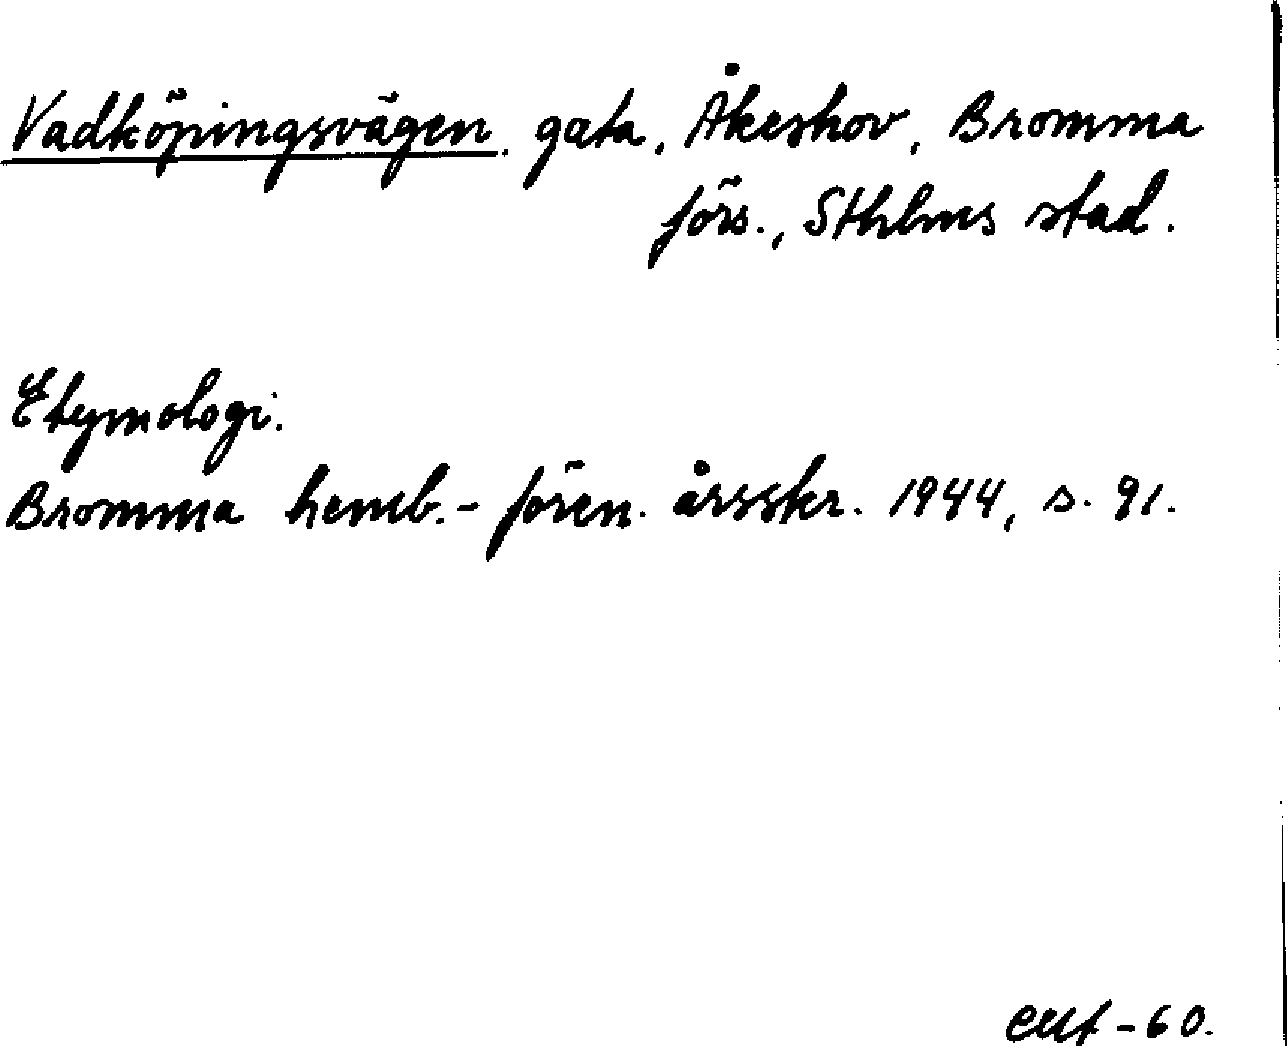 Vadköpingsvägen, gata, Åkeshov, Bromma
förs., Sthlms stad.
Etymologi.
Bromma hemb.- fören. årsskr. 1944, s. 91.
-60.